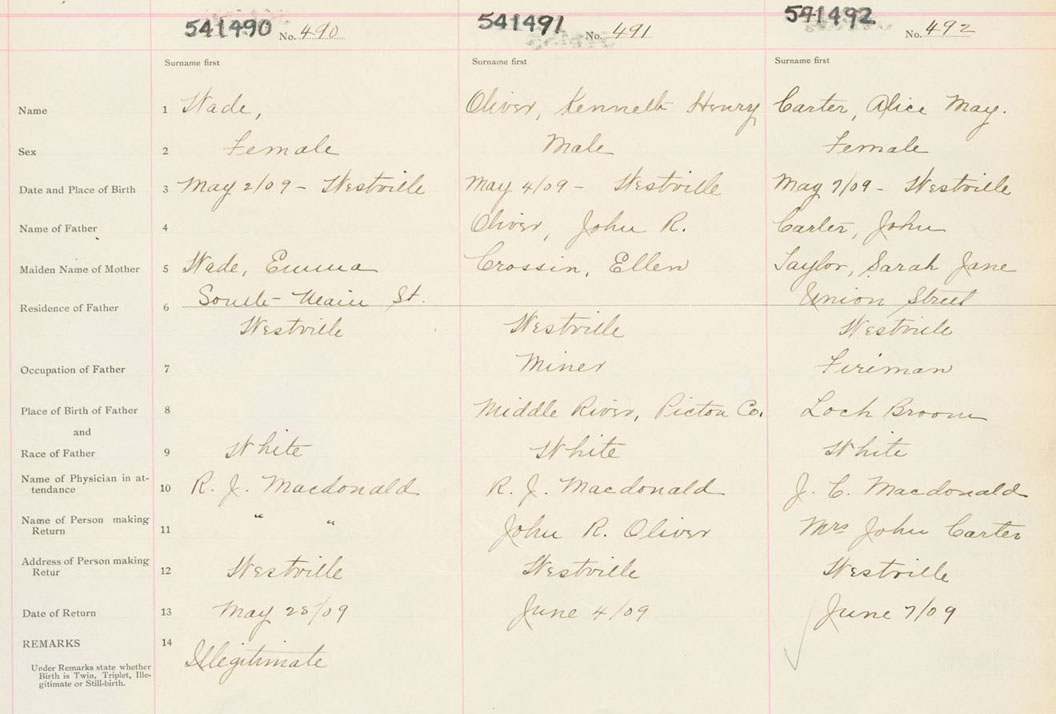 541490 No. 490 541491 No. 491 541492 No. 492
Surname first Surname first Surname first
Name 1 Wade, Oliver, Kenneth Henry Carter, Alice May.
Sex 2 Female Male Female
Date and Place of Birth 3 May 2/09 - Westville May 4/09 - Westville May 7/09 - Westville
Name of Father 4 Oliver, John R. Carter, John
Maiden Name of Mother 5 Wade, Emma Crossin, Ellen Taylor, Sarah Jane
South Main St. Union Street
Residence of Father 6
Westville Westville Westville
Occupation of Father 7 Miner Fireman
Place of Birth of Father 8 Middle River, Pictou Co. Loch Broom
and
Race of Father 9 White White White
Name of Physician in at-
tendance 10 R. J. Macdonald R. J. Macdonald J. C. Macdonald
Name of Person making
Return 11 " " John R. Oliver Mrs John Carter
Address of Person making
Retur 12 Westville Westville Westville
Date of Return 13 May 28/09 June 4/09 June 7/09
REMARKS 14 Illegitimate
Under Remarks state whether
Birth is Twin, Triplet, Ille-
gitimate or Still-birth.